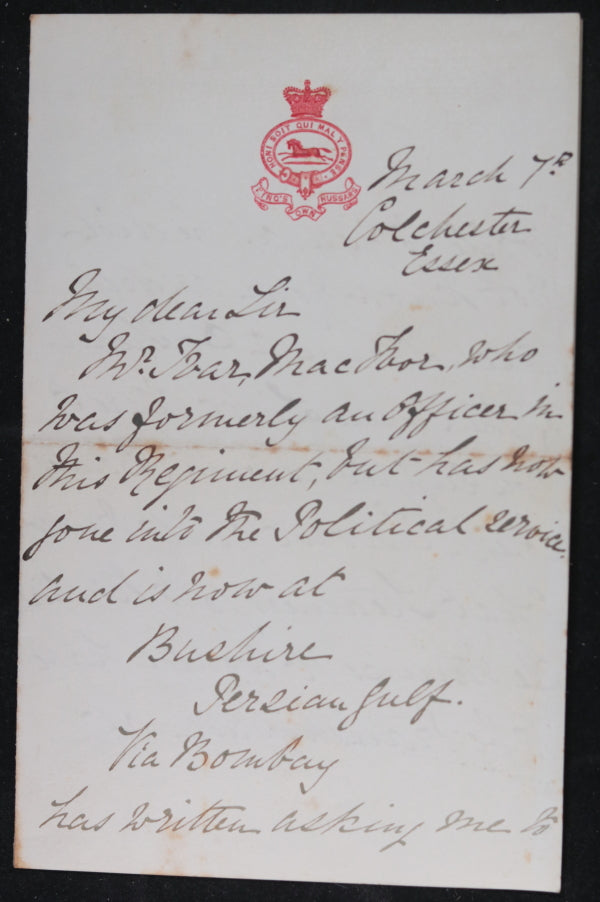 HONI SOIT QUI MAL Y PENSE
KING'S OWN HUSSARS
March 7th
Colchester
Essex
My dear Sir
Mr. Ivar, MacIvor, who
was formerly an Officer in
this Regiment, but has now
gone into the Political Service,
and is now at
Bushire
Persian Gulf.
Via Bombay
has written asking me to